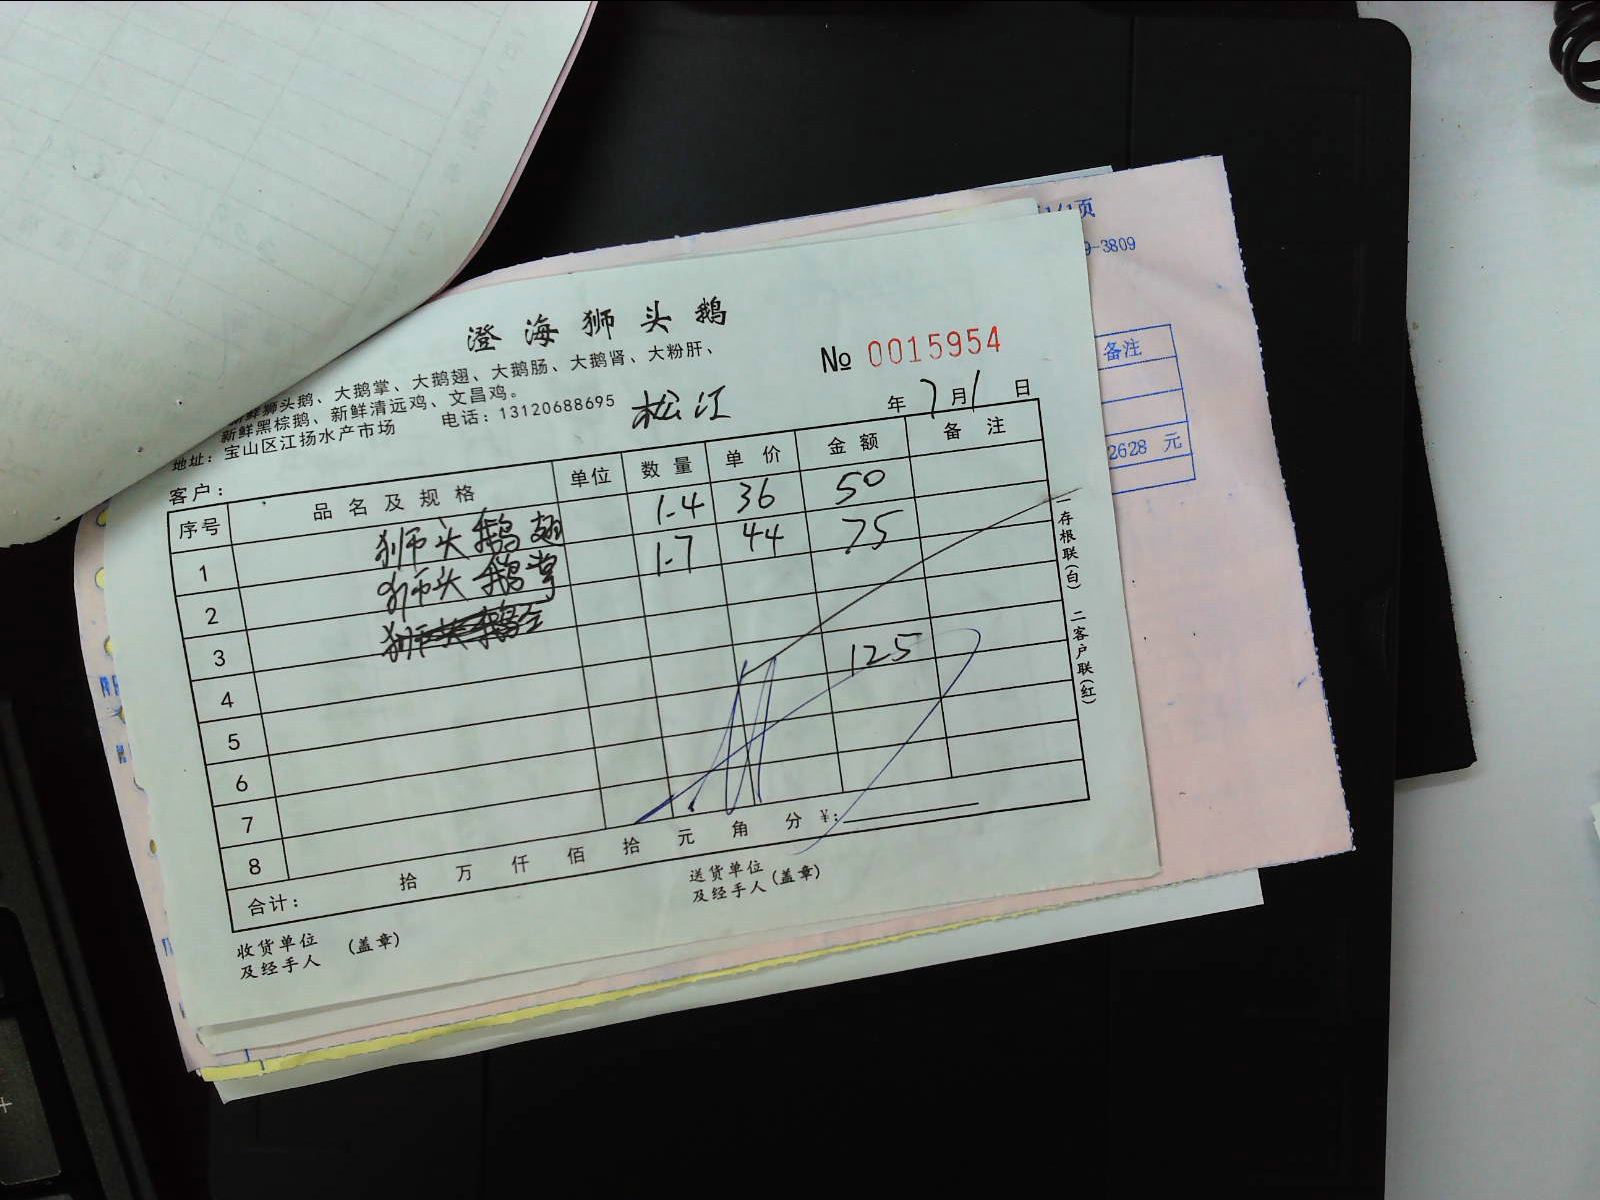 澄海狮头鹅
鲜狮头鹅、大鹅掌、大鹅翅、大鹅肠、大鹅肾、大粉肝、
新鲜黑棕鹅、新鲜清远鸡、文昌鸡。
地址：宝山区江扬水产市场 电话：13120688695
№ 0015954
客户：
松江
年 7月1日
序号 品名及规格 单位 数量 单价 金额 备注
1 狮头鹅翅 1.4 36 50
2 狮头鹅掌 1.7 44 75
3
4 125
5
6
7
8
合计： 拾 万 仟 佰 拾 元 角 分 ¥：
收货单位及经手人 (盖章)
送货单位及经手人(盖章)
一存根联(白) 二客户联(红)
1/1页
9-3809
备注
2628 元